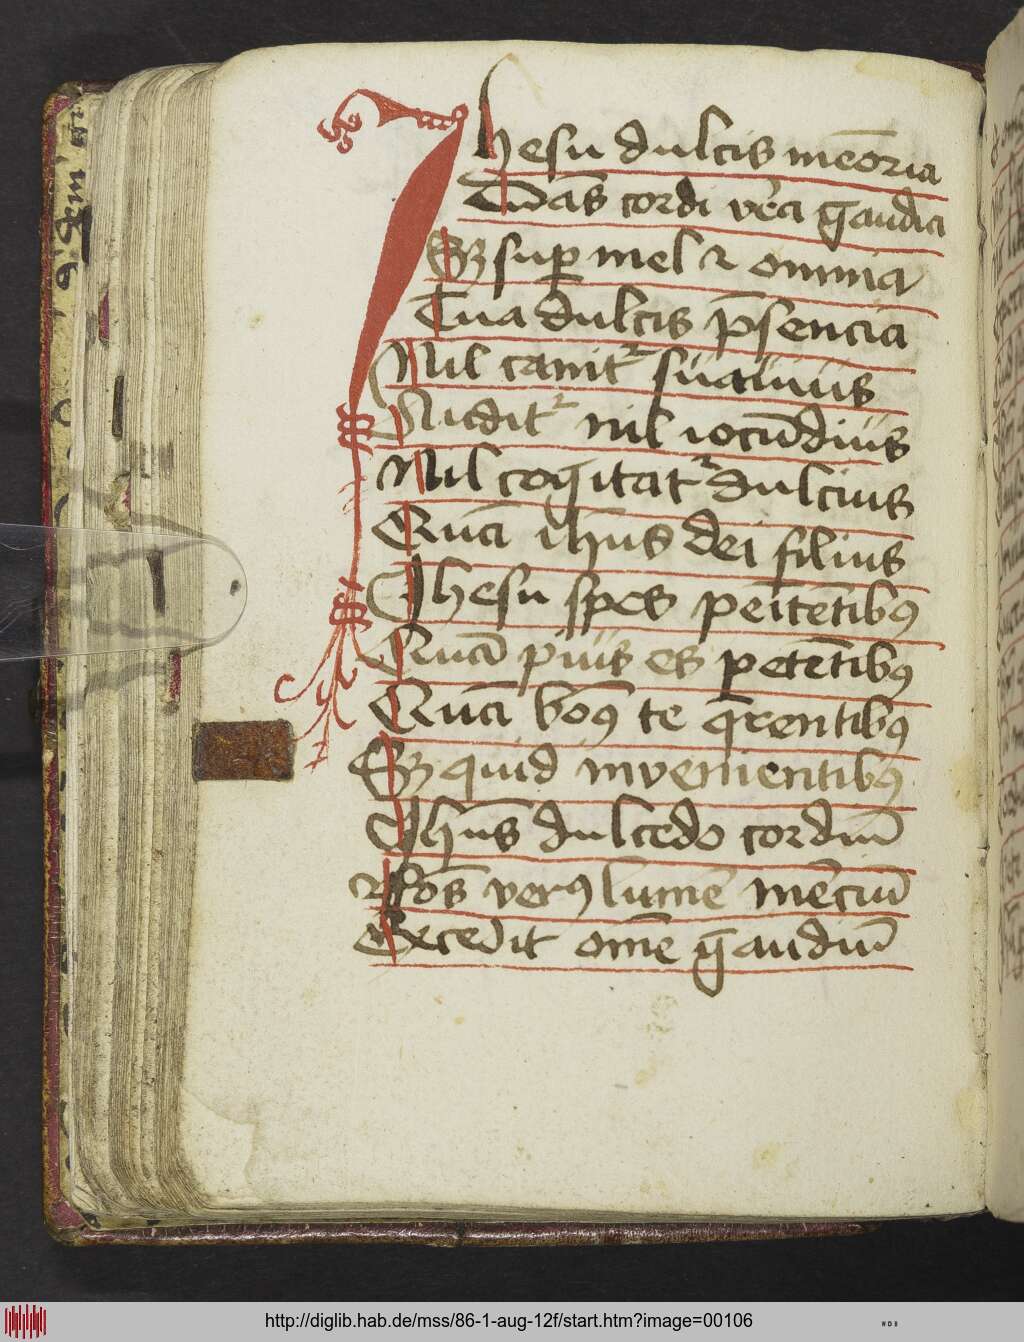 Ihesu dulcis meōria
Dās cordi v̄a gaudia
Sꝫ suꝑ mel ⁊ omnia
Tua dulcis p̄sencia
Nil canit᷑ suauius
Audit᷑ nil iocūdius
Nil cogitat᷑ dulcius
Quā ihus dei filius
Ihesu spes peitētibꝰ
Quā pius es petētibꝰ
Quā bōꝰ te q̄rentibꝰ
Sꝫ quid invenientibꝰ
Ihus dulcedo cordiū
ffōs verꝰ lumē mēciū
Excedit omē gaudiū
http://diglib.hab.de/mss/86-1-aug-12f/start.htm?image=00106